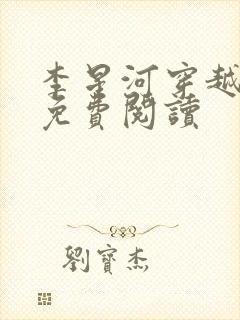 李星河穿越
免費閱讀
劉寶杰